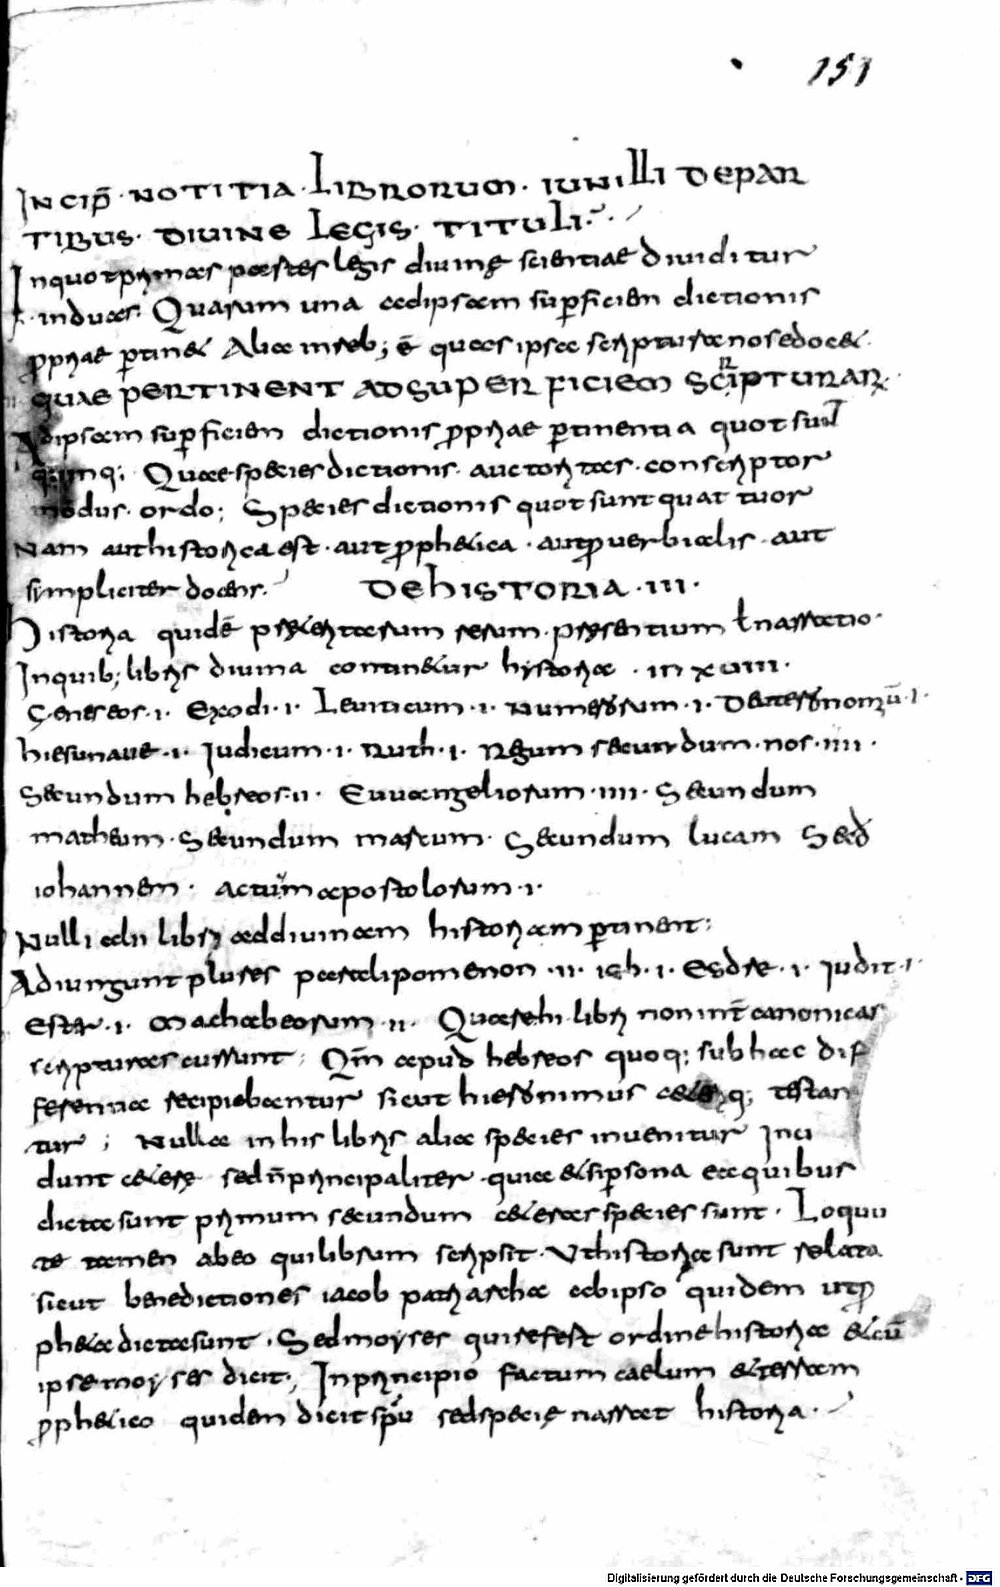 151
INCIP̄ · NOTITIA · LIBRORUM · IUNILLI DE PAR
TIBUS · DIUINE LEGIS · TITULI ·
In quot primas partes legis diuinę scientiae diuiditur
· in duas · Quarum una ad ipsam sup̱ficien dictionis
p̱priae p̱tin& Alia in reb; ē quas ipsa scriptura nos edoc&·
QUAE PERTINENT AD SUPERFICIEM SCRIPTURAR̄ ·
Ad ipsam sup̱ficien dictionis p̱priae p̱tinentia quot sunt
q:inq; Quae species dictionis · auctoritas · conscriptor
modus · ordo; Species dictionis quot sunt quattuor
Nam aut historica est · aut p̱ph&ica · aut p̱uerbialis · aut
simpliciter docens · DE HISTORIA · III ·
Historia quidē pr&eritarum rerum · presentium ł narratio ·
In quib; libris diuina contin&ur hystoria · in xuiii ·
Geneseos · i · Exodi · i · Leuiticum · i · Numerorum · i · Deuteronomiū · i ·
hiesu naue · i · Iudicum · i · Ruth · i · Regum secundum · nos · iiii ·
Secundum hebreos · ii · Euuangeliorum · iiii · Secundum
matheum · Secundum marcum · Secundum lucam Secd
iohannem · actum apostolorum · i ·
Nulli alii libri ad diuinam historiam p̱tinent;
Adiungunt plures paralipomenon · ii · iob · i · Esdre · i · Iudit · i ·
Ester · i · Machabeorum · ii · Quare hi libri non int̄ canonicas
scripturas currunt; Qm̄ apud hebreos quoq; sub hac dif
ferentia recipiebantur sicut hieronimus c&eriq; testan
tur; Nulla in his libris alia species inuenitur Inci
dunt c&erę sed n̄ principaliter · quia &si p̱sona ea quibus
dicta sunt primum secundum c&eras species sunt · Loquu
te tamen ab eo qui librum scripsit · Ut historia sunt relata
sicut benedictiones iacob patriarcha ab ipso quidem ut p̱
ph&ia dicta sunt · Sed moyses qui refert ordine historia &cū
ipse moyses dicit; In principio factum caelum &terram
p̱ph&ico quidem dicit spū sed specię narrat historia ·
Digitalisierung gefördert durch die Deutsche Forschungsgemeinschaft - DFG